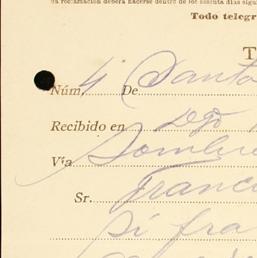 na reclamación deberá hacerse dentro de los sesenta días sigui
Todo telegr
T
Núm. 4 De Santo
Recibido en Dgo
Vía Sombre
Sr. Franci
Si fra